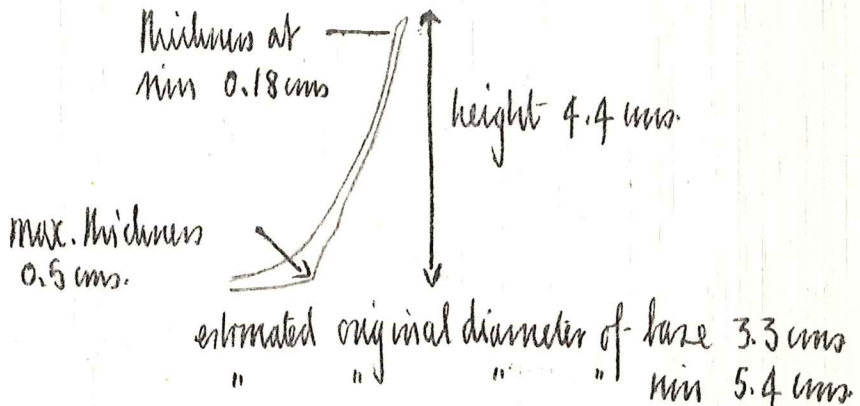 thickness at
rim 0.18 cms
height 4.4 cms.
max. thickness
0.5 cms.
estimated original diameter of base 3.3 cms
" " " " rim 5.4 cms.